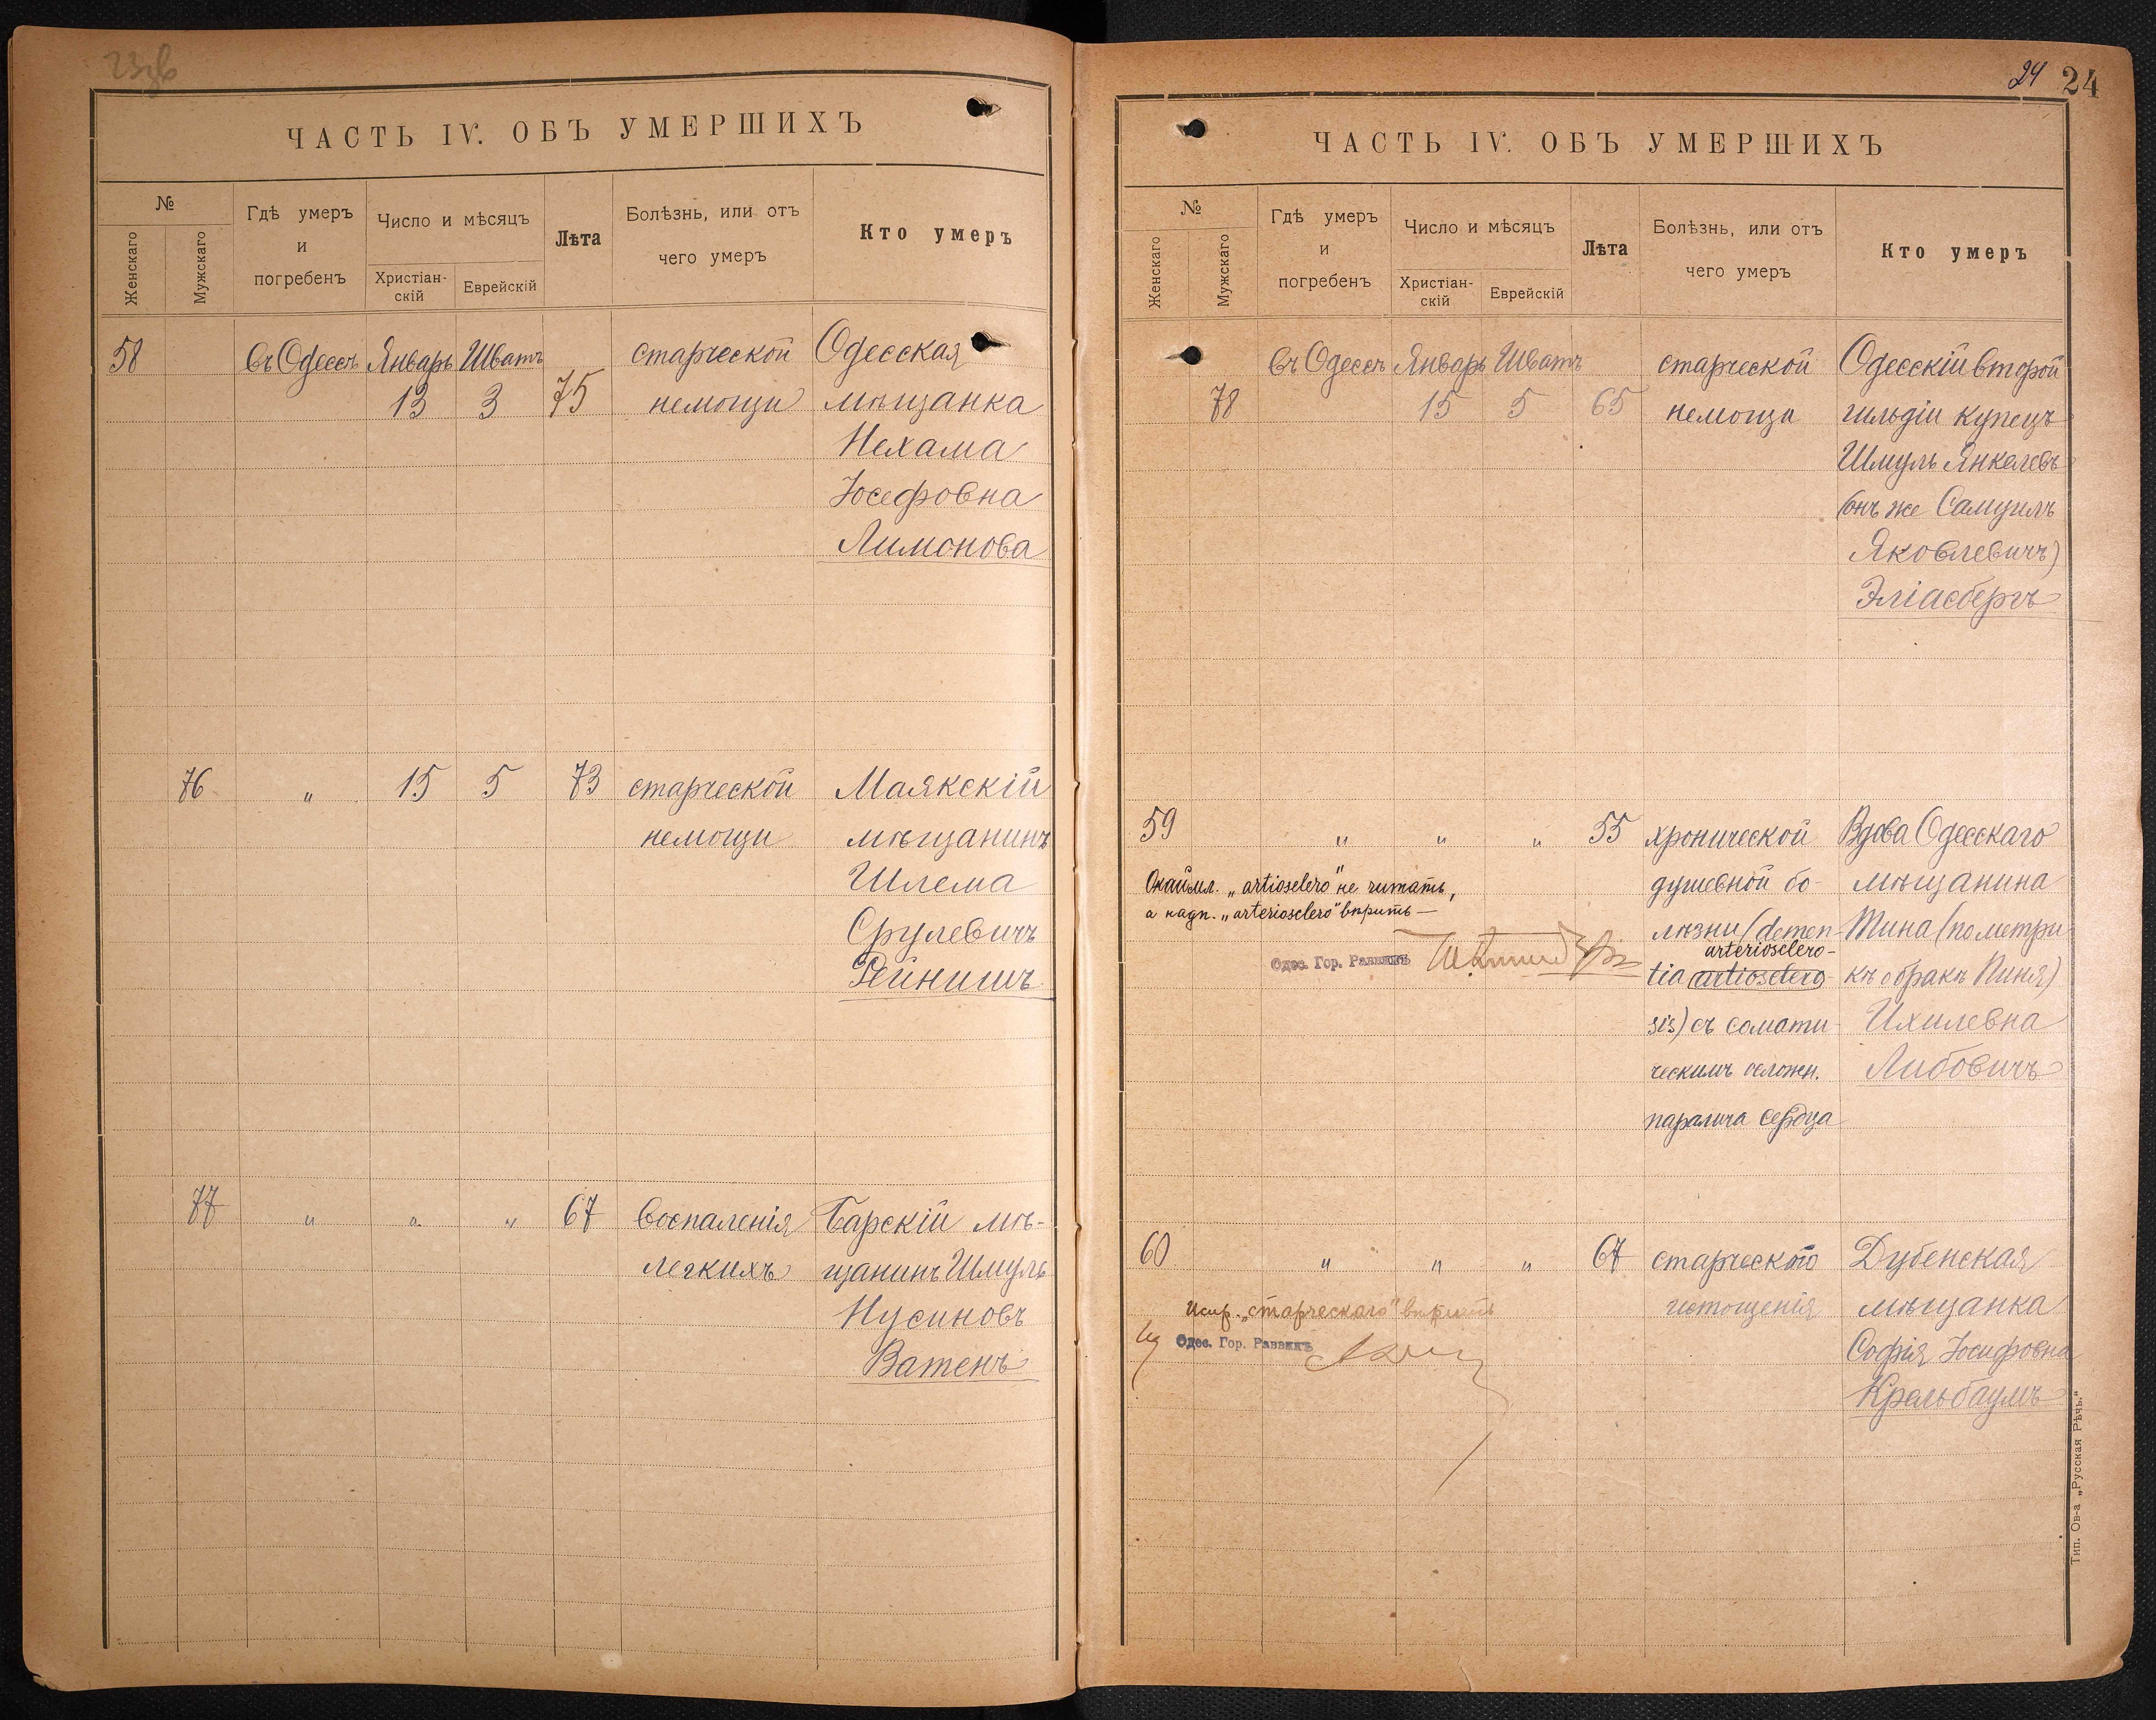 23об
ЧАСТЬ IV. ОБЪ УМЕРШИХЪ
№
Женскаго
Мужскаго
Гдѣ умеръ
и
погребенъ
Число и мѣсяцъ
Христіан-
скій
Еврейскій
Лѣта
Болѣзнь, или отъ
чего умеръ
Кто умеръ
58 въ Одессѣ Январь Шватъ старческой Одесская
13 3 75 немощи мѣщанка
Нехама
Іосефовна
Лимонова
76 " 15 5 73 старческой Маякскій
немощи мѣщанинъ
Шлема
Срулевичъ
Рейнишъ
77 " " " 67 воспаленія Барскій мѣ-
легкихъ щанинъ Шмуль
Нусиновъ
Ватенъ
24 24
ЧАСТЬ IV. ОБЪ УМЕРШИХЪ
№
Женскаго
Мужскаго
Гдѣ умеръ
и
погребенъ
Число и мѣсяцъ
Христіан-
скій
Еврейскій
Лѣта
Болѣзнь, или отъ
чего умеръ
Кто умеръ
въ Одессѣ Январь Шватъ старческой Одесскій второй
78 15 5 65 немощи гильдіи купецъ
Шмуль Янкелевъ
(онъ же Самуилъ
Яковлевичъ)
Эліасбергъ
59 " " " 55 хронической Вдова Одесскаго
душевной бо- мѣщанина
Окаймл. „artiosclero" не читать,
а надп. „arteriosclero" вѣрить —
лѣзни (demen- Тина (по метри-
arteriosclero-
Одес. Гор. Раввинъ
tia artiosclero- кѣ о бракѣ Пиня)
sis) съ сомати- Ихилевна
ческимъ осложн. Либовичъ
паралича сердца
60 " " " 67 старческаго Дубенская
истощенія мѣщанка
Испр. „старческаго" вѣрить
Одес. Гор. Раввинъ
Софія Іосифовна
Крельбаумъ
Тип. Ов-а „Русская Рѣчь."